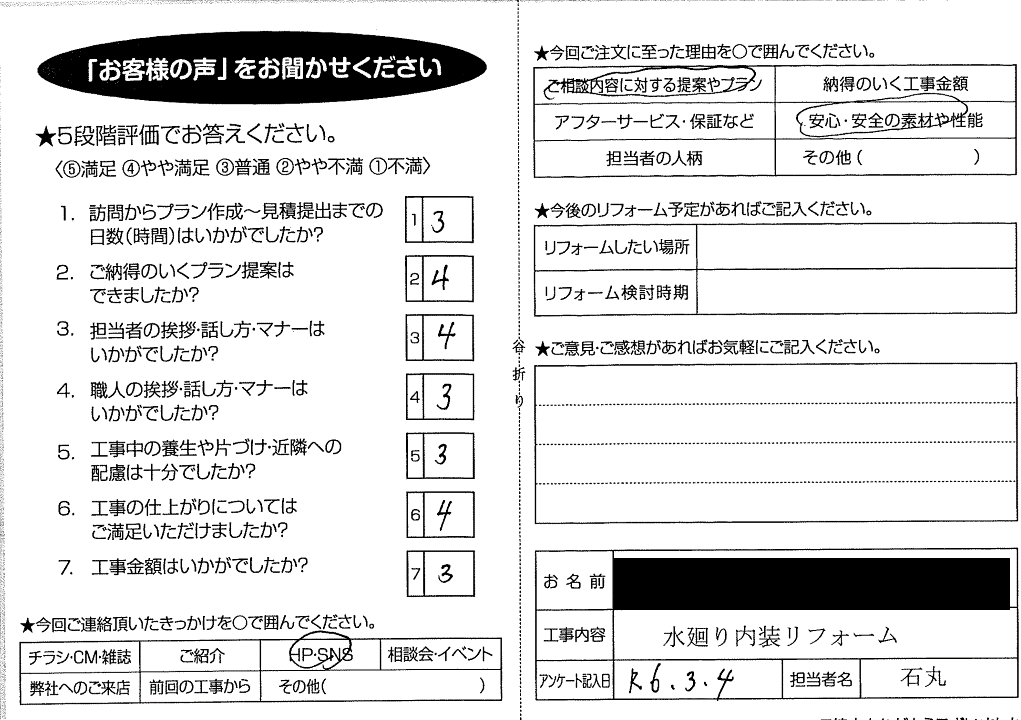 「お客様の声」をお聞かせください
★5段階評価でお答えください。
〈⑤満足 ④やや満足 ③普通 ②やや不満 ①不満〉
1. 訪問からプラン作成～見積提出までの
日数(時間)はいかがでしたか?
1 3
2. ご納得のいくプラン提案は
できましたか?
2 4
3. 担当者の挨拶・話し方・マナーは
いかがでしたか?
3 4
4. 職人の挨拶・話し方・マナーは
いかがでしたか?
4 3
5. 工事中の養生や片づけ・近隣への
配慮は十分でしたか?
5 3
6. 工事の仕上がりについては
ご満足いただけましたか?
6 4
7. 工事金額はいかがでしたか?
7 3
★今回ご連絡頂いたきっかけを○で囲んでください。
チラシ・CM・雑誌 ご紹介 HP・SNS 相談会・イベント
弊社へのご来店 前回の工事から その他( )
谷折り
★今回ご注文に至った理由を○で囲んでください。
ご相談内容に対する提案やプラン 納得のいく工事金額
アフターサービス・保証など 安心・安全の素材や性能
担当者の人柄 その他( )
★今後のリフォーム予定があればご記入ください。
リフォームしたい場所
リフォーム検討時期
★ご意見・ご感想があればお気軽にご記入ください。
お名前
工事内容 水廻り内装リフォーム
アンケート記入日 R6.3.4 担当者名 石丸